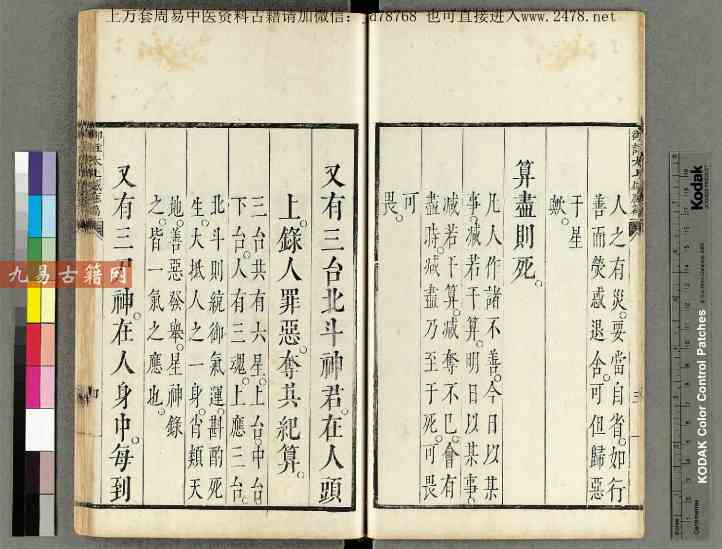 上万套周易中医资料古籍请加微信：jd78768 也可直接进入www.2478.net
人之有災。要當自省。如行
善而熒惑退舍。可但歸惡
于星
歟。
算盡則死。
凡人作諸不善。今日以某
事。減若干算。明日以某事。
減若干算。減奪不已。會有
盡時。減盡乃至于死。可畏
可
畏。
三
又有三台北斗神君。在人頭
上。錄人罪惡。奪其紀算。
三台共有六星。上台。中台。
下台。人有三魂。上應三台。
北斗則統御氣運。斟酌死
生。大抵人之一身。肖類天
地。善惡發舉。星神錄
之。皆一氣之應也。
又有三尸神。在人身中。每到
九易古籍网
四
Kodak
KODAK Color Control Patches